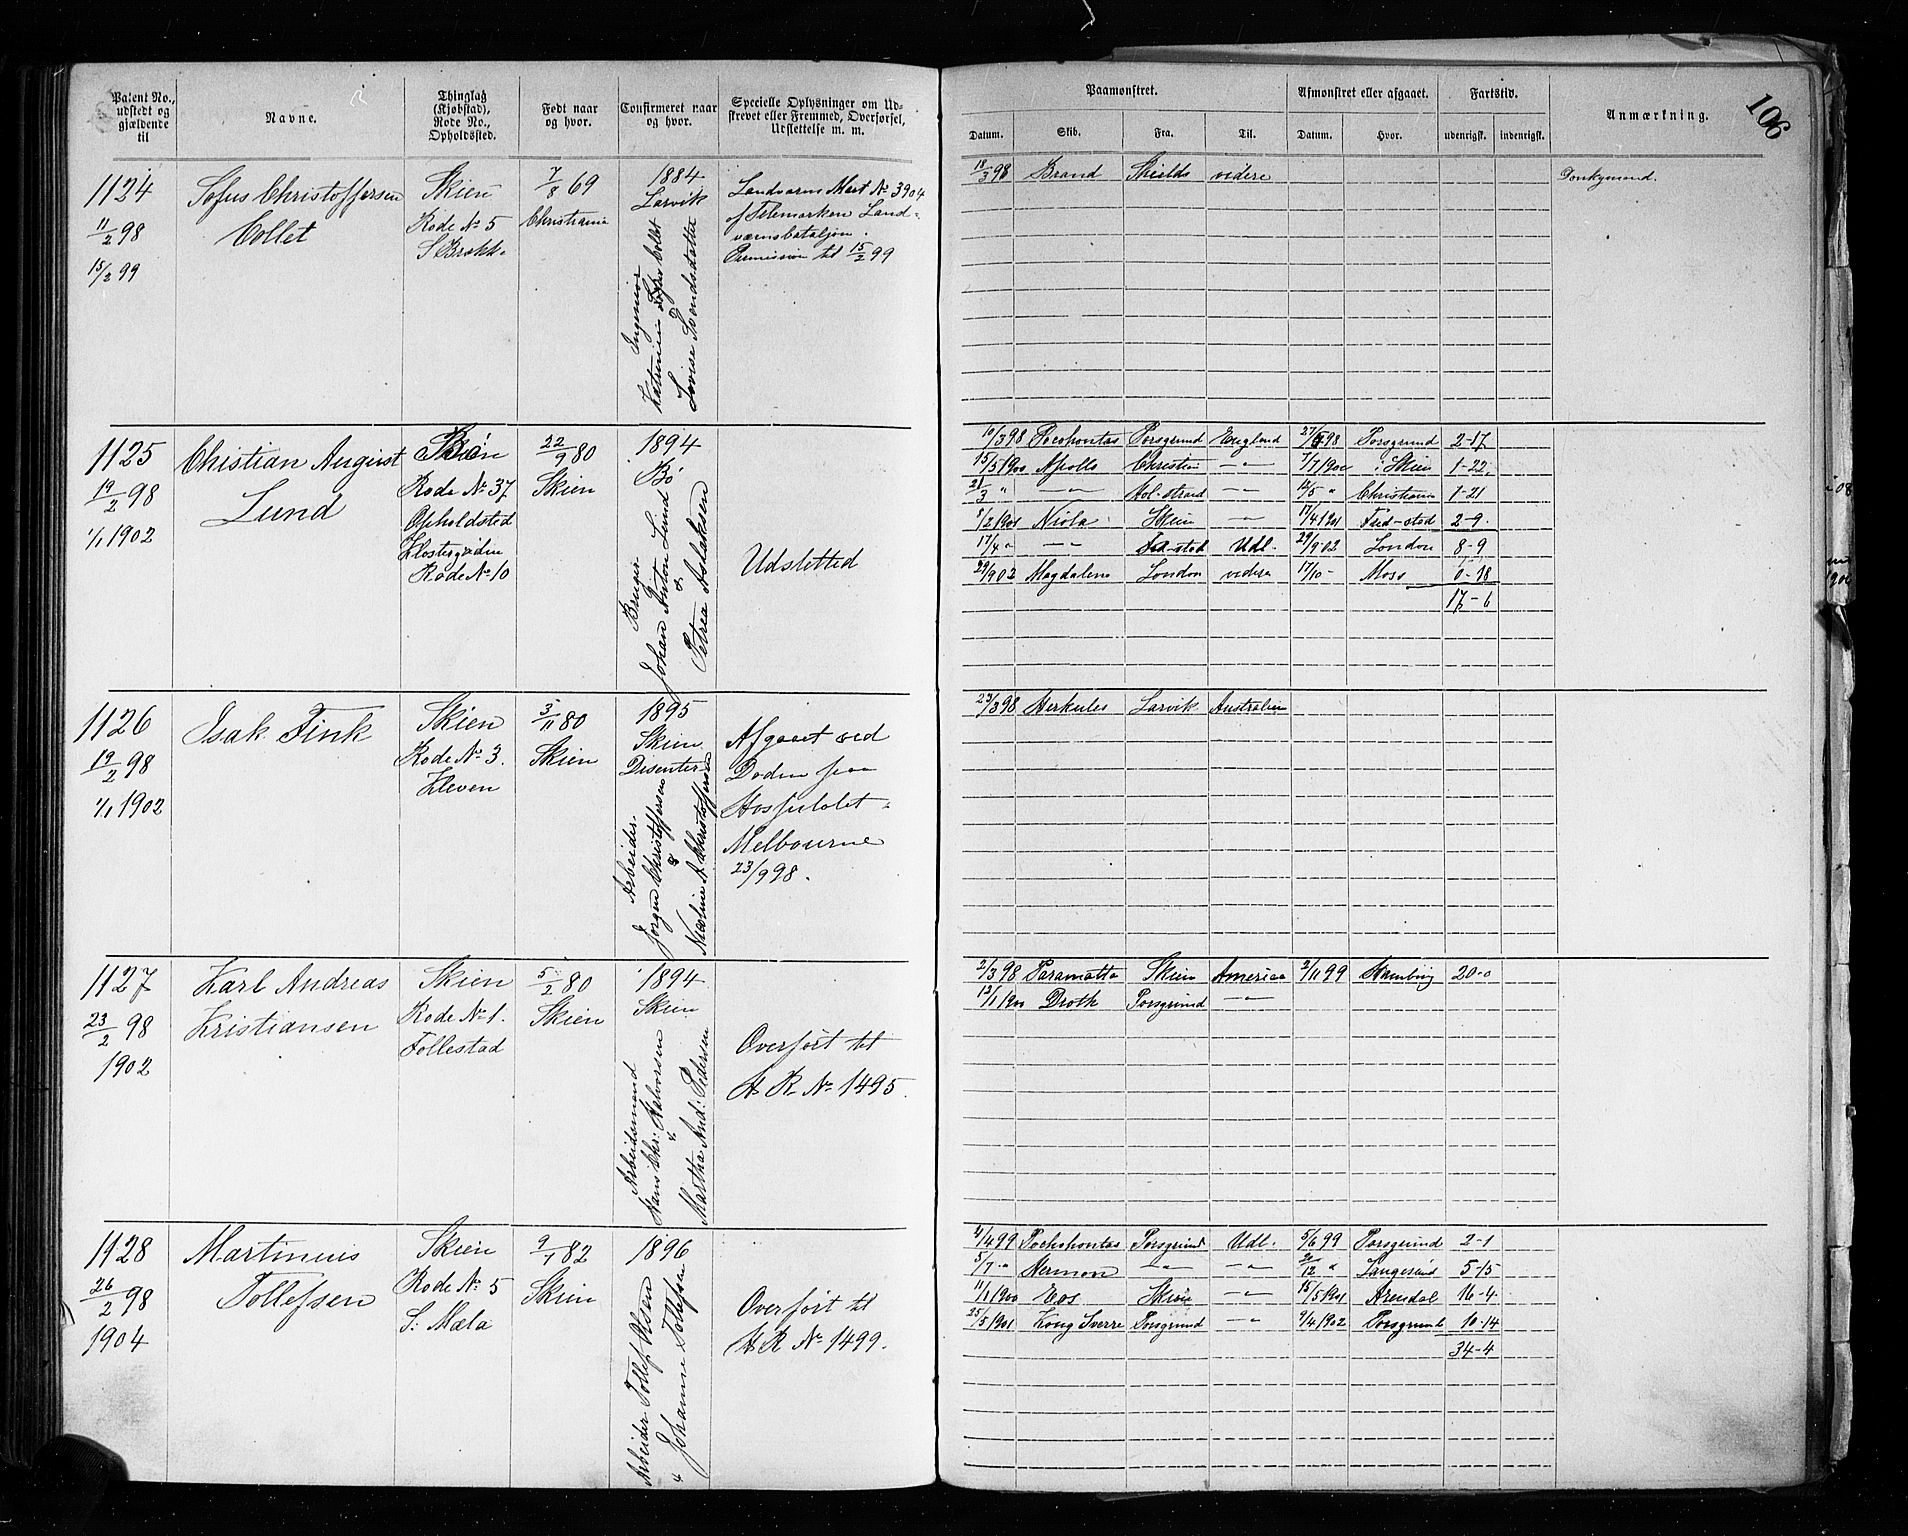 Patent No., udstedt og gjældende til
Navne.
Thinglag (Kjøbstad), Rode No., Opholdssted.
Født naar og hvor.
Confirmeret naar og hvor.
Specielle Oplysninger om Udskrevet eller Fremmed, Overførsel, Udslettelse m. m.
Paamønstret.
Datum. Skib. Fra. Til.
Afmønstret eller afgaaet.
Datum. Hvor.
Fartstid.
udenrigsk. indenrigsk.
Anmærkning.
106
1124
11/2 98
15/2 99
Sofus Christoffersen
Collet
Skien
Rode No 5
S. Brekke
7/8 69
Christiania
1884
Larvik
Ingeniør
Lovise Svendsdatter
Landværns Mart No 3904
af Telemarken Land-
værnsbataljon.
Permission til 15/2 99
18/3 98 Brand Shields videre
Donkymand.
1125
19/2 98
1/1 1902
Chistian August
Lund
Skien
Rode No 37
Opholdsted
Klostergaden
Rode No 10
22/9 80
Skien
1894
Bö
Johan Anton Lund
&
Petrea Aslaksen
Udslettet
10/3 98 Pocohontas Porsgrund England 27/5 98 Porsgrund 2-17
15/5 1900 Apollo Christian -"- 7/7 1900 Skien 1-22
21/3 " -"- Hol-strand -"- 12/5 " Christiania 1-21
8/2 1901 Niola Skien -"- 17/4 1901 Fred-stad 2-9
17/4 " -"- Fred-stad Udl. 29/9 02 London 8-9
29/9 02 Magdalene London videre 17/10 - Moss 0-18
17-6
1126
19/2 98
1/1 1902
Isak Fink
Skien
Rode No 3.
Kleven
3/11 80
Skien
1895
Skien
Disenter
Arbeider.
Jørgen Christoffersen
&
Nicoline A. Christoffersen
Afgaaet ved
Døden paa
Hospitalet -
Melbourne
23/9 98.
29/3 98 Herkules Larvik Australien
1127
23/2 98
1902
Karl Andreas
Kristiansen
Skien
Rode No 1.
Follestad
5/2 80
Skien
1894
Skien
Arbeidsmand
Hans Chr: Halvorsen
&
Martha And: Pedersen
Overført til
H R No 1495.
2/3 98 Paramatta Skien America 2/11 99 Hamburg 20-0
13/1 1900 Drott Porsgrund -"-
1128
26/2 98
1904
Martinius
Tollefsen
Skien
Rode No 5
S. Mæla
9/1 82
Skien
1896
Arbeider Tollef Olsen
&
Johanne Tollefsen
Overført til
H R No 1499.
4/4 99 Pochohontas Porsgrund Udl. 5/6 99 Porsgrund 2-1
5/7 " Hermon -"- -"- 20/12 " Langesund 5-15
11/1 1900 Eos Skien -"- 15/5 1901 Arendal 16-4
25/5 1901 Kong Sverre Porsgrund -"- 9/4 1902 Porsgrund 10-14
34-4